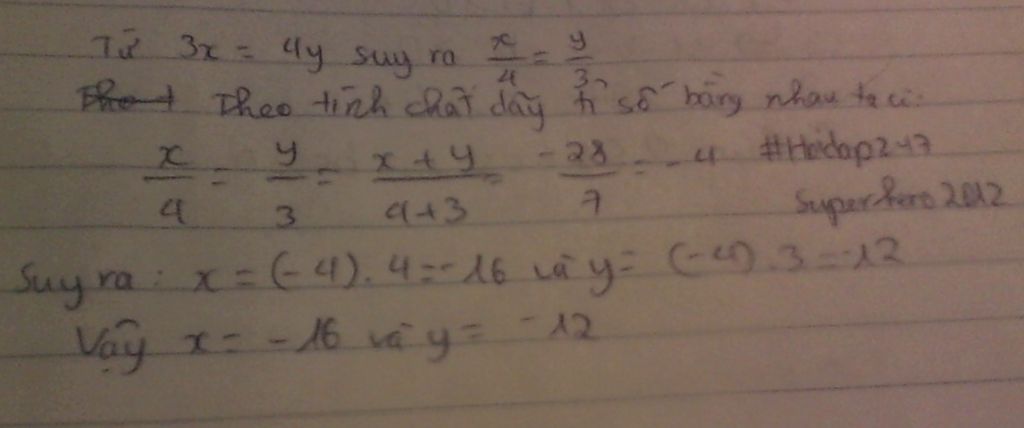 Từ 3x = 4y suy ra x/4 = y/3
Theo tính chất dãy tỉ số bằng nhau ta có:
x/4 = y/3 = x + y/4+3 = -28/7 = -4 #Hoidap247
Superhero2012
Suy ra: x = (-4).4=-16 và y= (-4).3=-12
Vậy x = -16 và y = -12